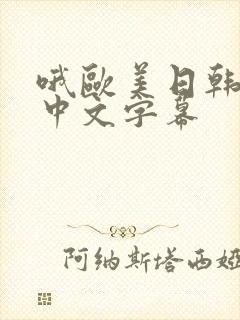 哦歐美日韩
中文字幕
阿纳斯塔西娅